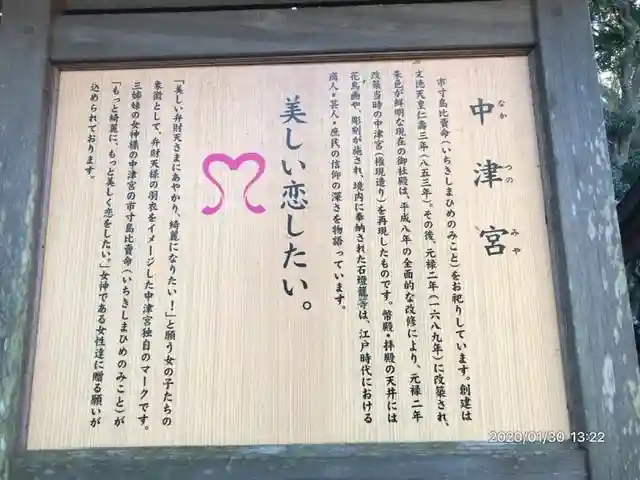 中津宮
なか つの みや
市寸島比賣命(いちきしまひめのみこと)をお祀りしています。創建は
文徳天皇仁壽三年(八五三年)。その後、元禄二年(一六八九年)に改築され、
朱色が鮮明な現在の御社殿は、平成八年の全面的な改修により、元禄二年
改築当時の中津宮(権現造り)を再現したものです。幣殿・拝殿の天井には
花鳥画や、彫刻が施され、境内に奉納された石燈籠等は、江戸時代における
商人・芸人・庶民の信仰の深さを物語っています。
美しい恋したい。
「美しい弁財天さまにあやかり、綺麗になりたい!」と願う女の子たちの
象徴として、弁財天様の羽衣をイメージした中津宮独自のマークです。
三姉妹の女神様の中津宮の市寸島比賣命(いちきしまひめのみこと)が
「もっと綺麗に、もっと美しく恋をしたい。」女神である女性達に贈る願いが
込められております。
2020/01/30 13:22